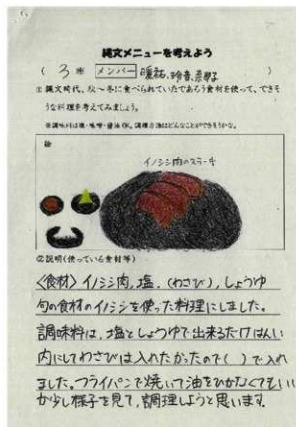 縄文メニューを考えよう
( 3 班 メンバー 暖祐、玲香、 )
①縄文時代、秋～冬に食べられていたであろう食材を使って、できそ
うな料理を考えてみましょう。
※調味料は塩・味噌・醤油OK。調理方法はどんなことができそうかな。
絵
イノシシ肉のステーキ
②説明(使っている食材等)
〈食材〉イノシシ肉、塩、(わさび)、しょうゆ
旬の食材のイノシシを使った料理にしました。
調味料は、塩としょうゆで出来るだけはんい
内にしてわさびは入れたかったので( )で入れ
ました。フライパンで焼いて油をひかなくてもいい
か少し様子を見て、調理しようと思います。